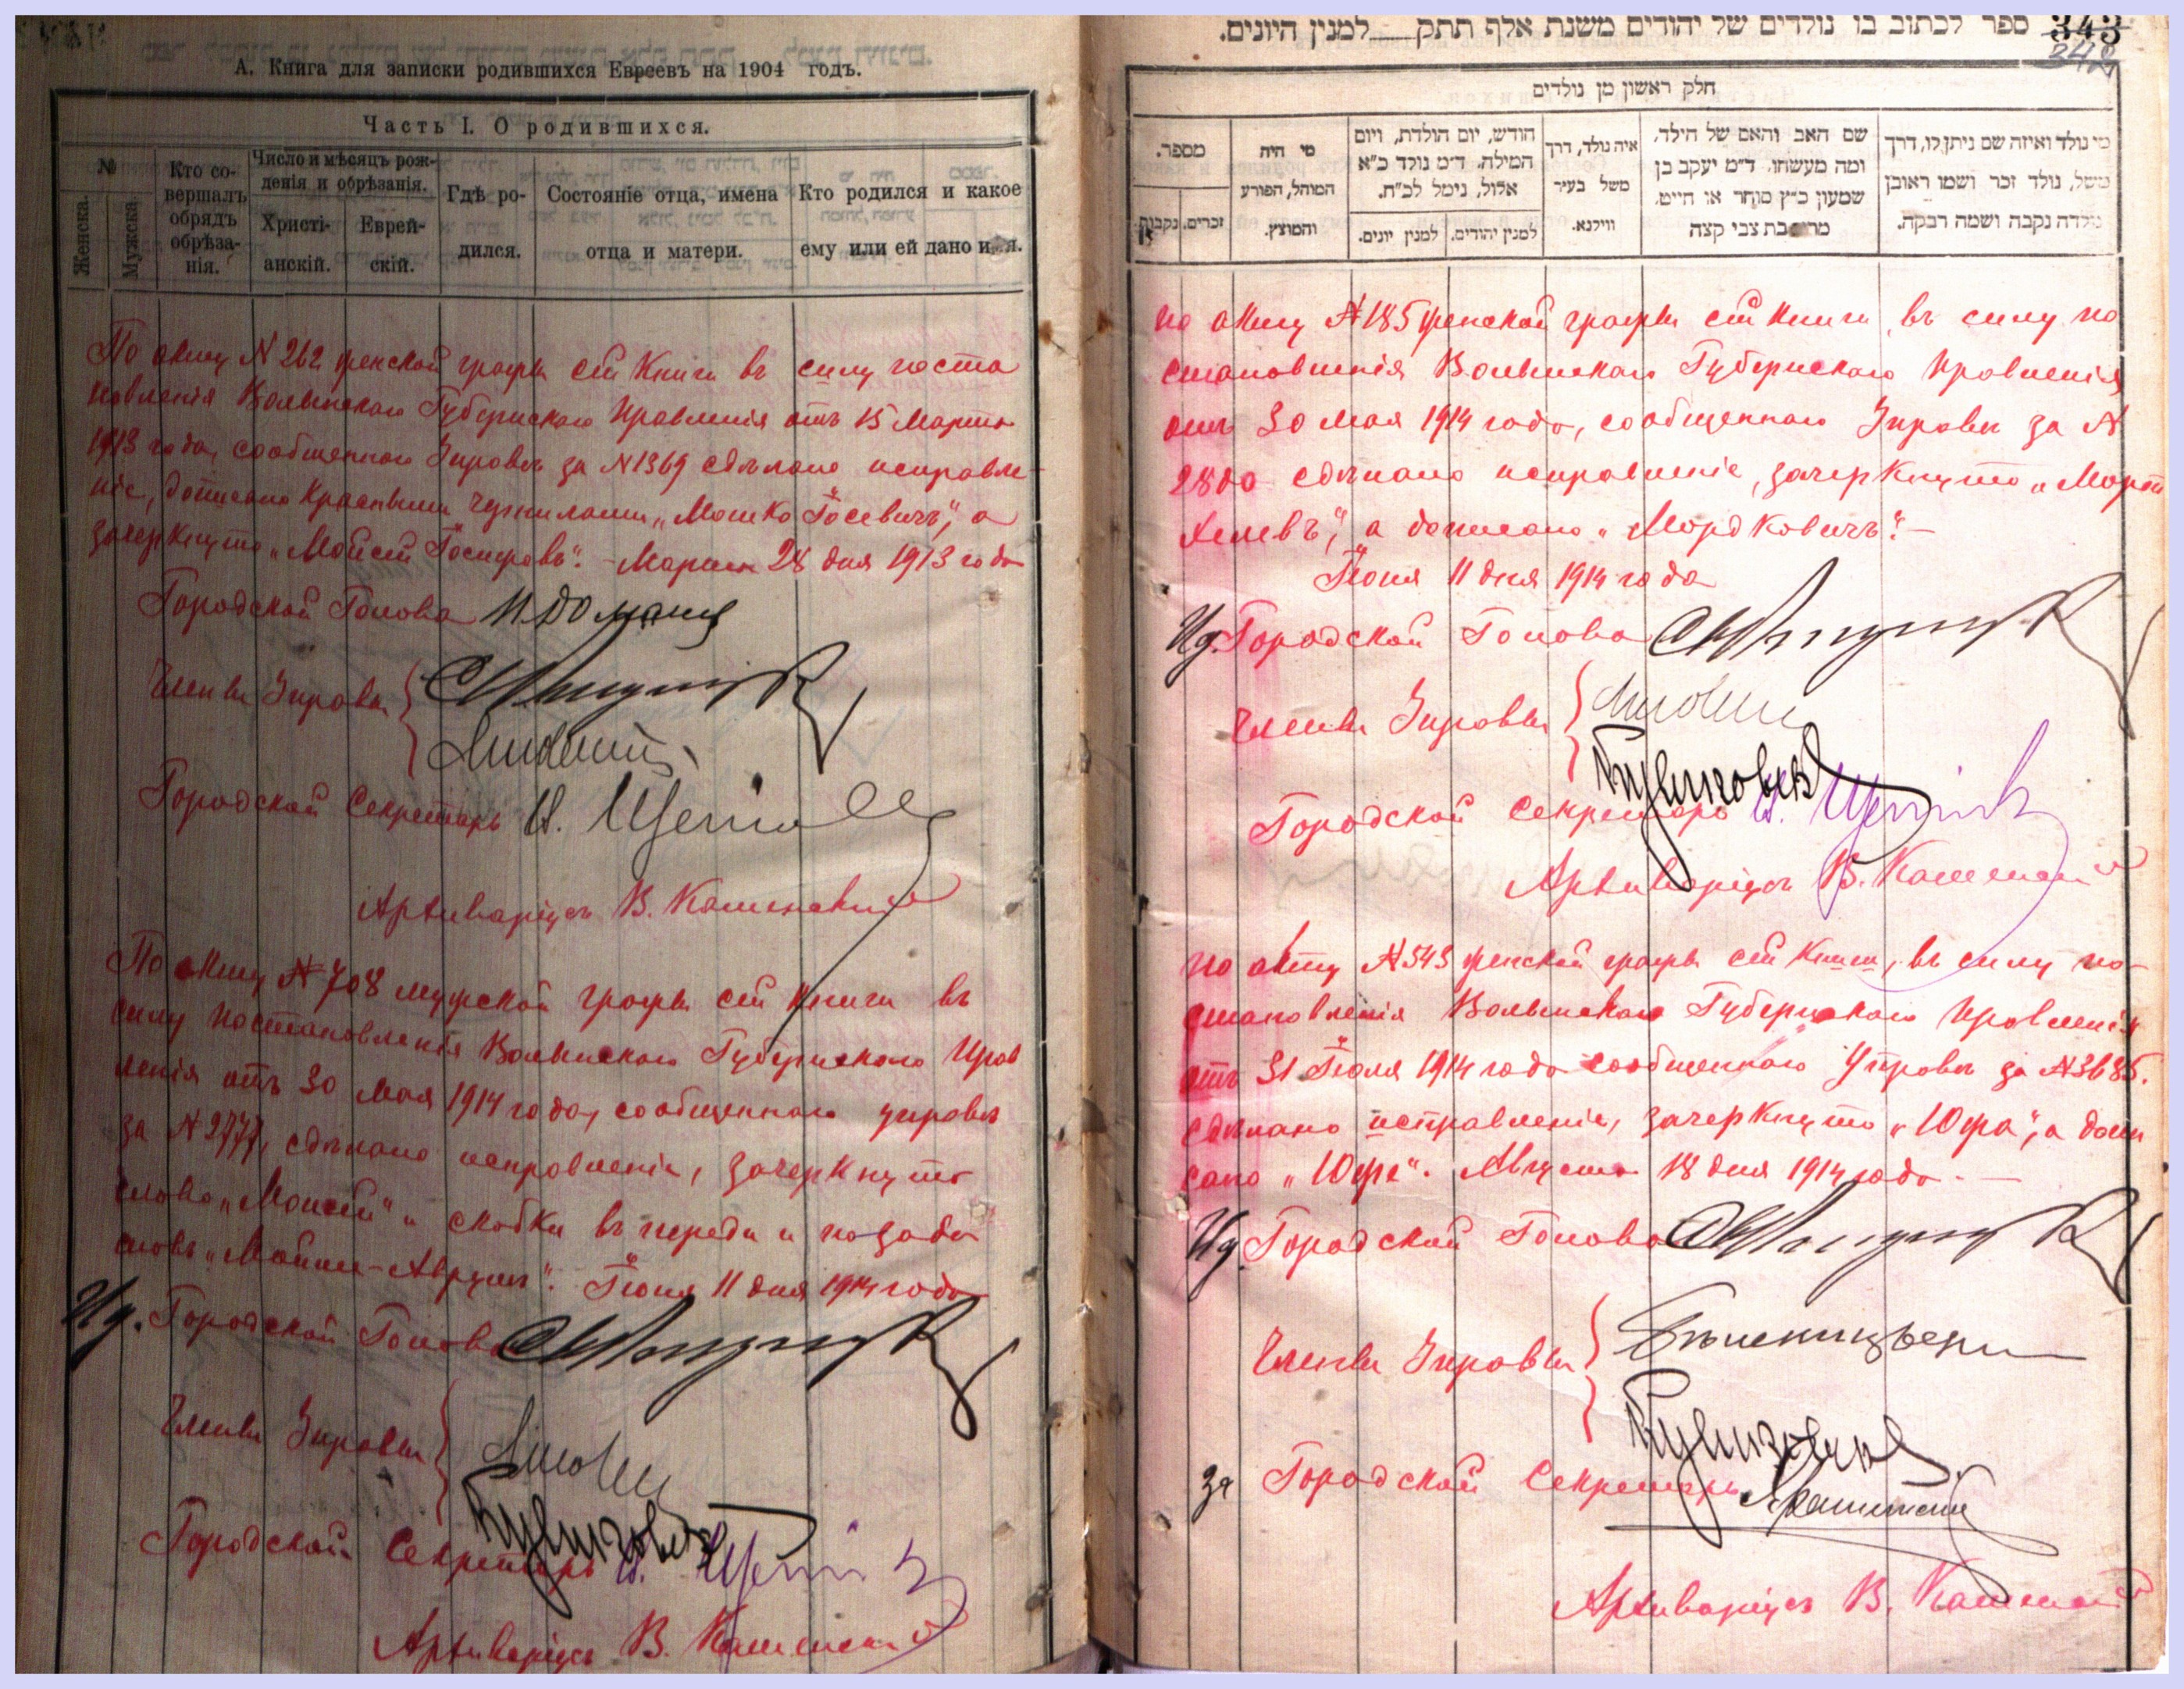 А. Книга для записки родившихся Евреевъ на 1904 годъ.
Часть I. О родившихся.
№
Женска.
Мужска
Кто со-
вершалъ
обрядъ
обрѣза-
нія.
Число и мѣсяцъ рож-
денія и обрѣзанія.
Христі-
анскій.
Еврей-
скій.
Гдѣ ро-
дился.
Состояніе отца, имена
отца и матери.
Кто родился и какое
ему или ей дано имя.
По акту N 262 женской графы сей Книги въ силу поста
новленія Волынскаго Губернскаго Правленія отъ 15 Марта
1913 года, сообщеннаго Управѣ за N 1369 сдѣлано исправле-
ніе, дописано красными чернилами „Мошко Іосевичъ", а
зачеркнуто „Мойсей Іосифовъ". – Марта 28 дня 1913 года
Городской Голова
Члены Управы
Городской Секретарь
Архиваріусъ В. Каменскій
По акту N 708 мужской графы сей книги въ
силу постановленія Волынскаго Губернскаго Прав
ленія отъ 30 мая 1914 года, сообщеннаго управѣ
за N 2777, сдѣлано исправленіе, зачеркнуто
слово „Моисей" и скобки въ переди и позади
словъ Іюня 11 дня 1914 года
Ид. Городской Голова
Члены Управы
Городской Секретарь
Архиваріусъ В. Каменскій
343
ספר לכתוב בו נולדים של יהודים משנת אלף תתק למנין היונים.
חלק ראשון מן נולדים
מספר.
זכרים.
נקבות.
מי היה
המוהל, הפורע
והמוצץ.
חודש, יום הולדת, ויום
המילה. ד״מ נולד כ״א
אלול, נימל לכ״ח.
למנין יהודים.
למנין יונים.
איה נולד, דרך
משל בעיר
ווילנא.
שם האב והאם של הילד,
ומה מעשהו. ד״מ יעקב בן
שמעון כ״ץ סוחר או חייט,
צבי קצה
מי נולד ואיזה שם ניתן לו, דרך
משל, נולד זכר ושמו ראובן
נולדה נקבה ושמה רבקה.
по акту N 185 женской графы сей книги, въ силу по
становленія Волынскаго Губернскаго Правленія
отъ 30 мая 1914 года, сообщеннаго Управѣ за N
сдѣлано исправленіе, зачеркнуто
а дописано „Мордковичъ". –
Іюня 11 дня 1914 года
Ид. Городской Голова
Члены Управы
Городской Секретарь
Архиваріусъ В. Каменскій
по акту N 543 женской графы сей книги, въ силу по-
становленія Волынскаго Губернскаго Правленія
отъ 31 Іюля 1914 года сообщеннаго Управѣ за N 3685.
сдѣлано исправленіе, зачеркнуто а допи
сано Августа 18 дня 1914 года. –
Ид. Городской Голова
Члены Управы
За Городской Секретарь
Архиваріусъ В. Каменскій